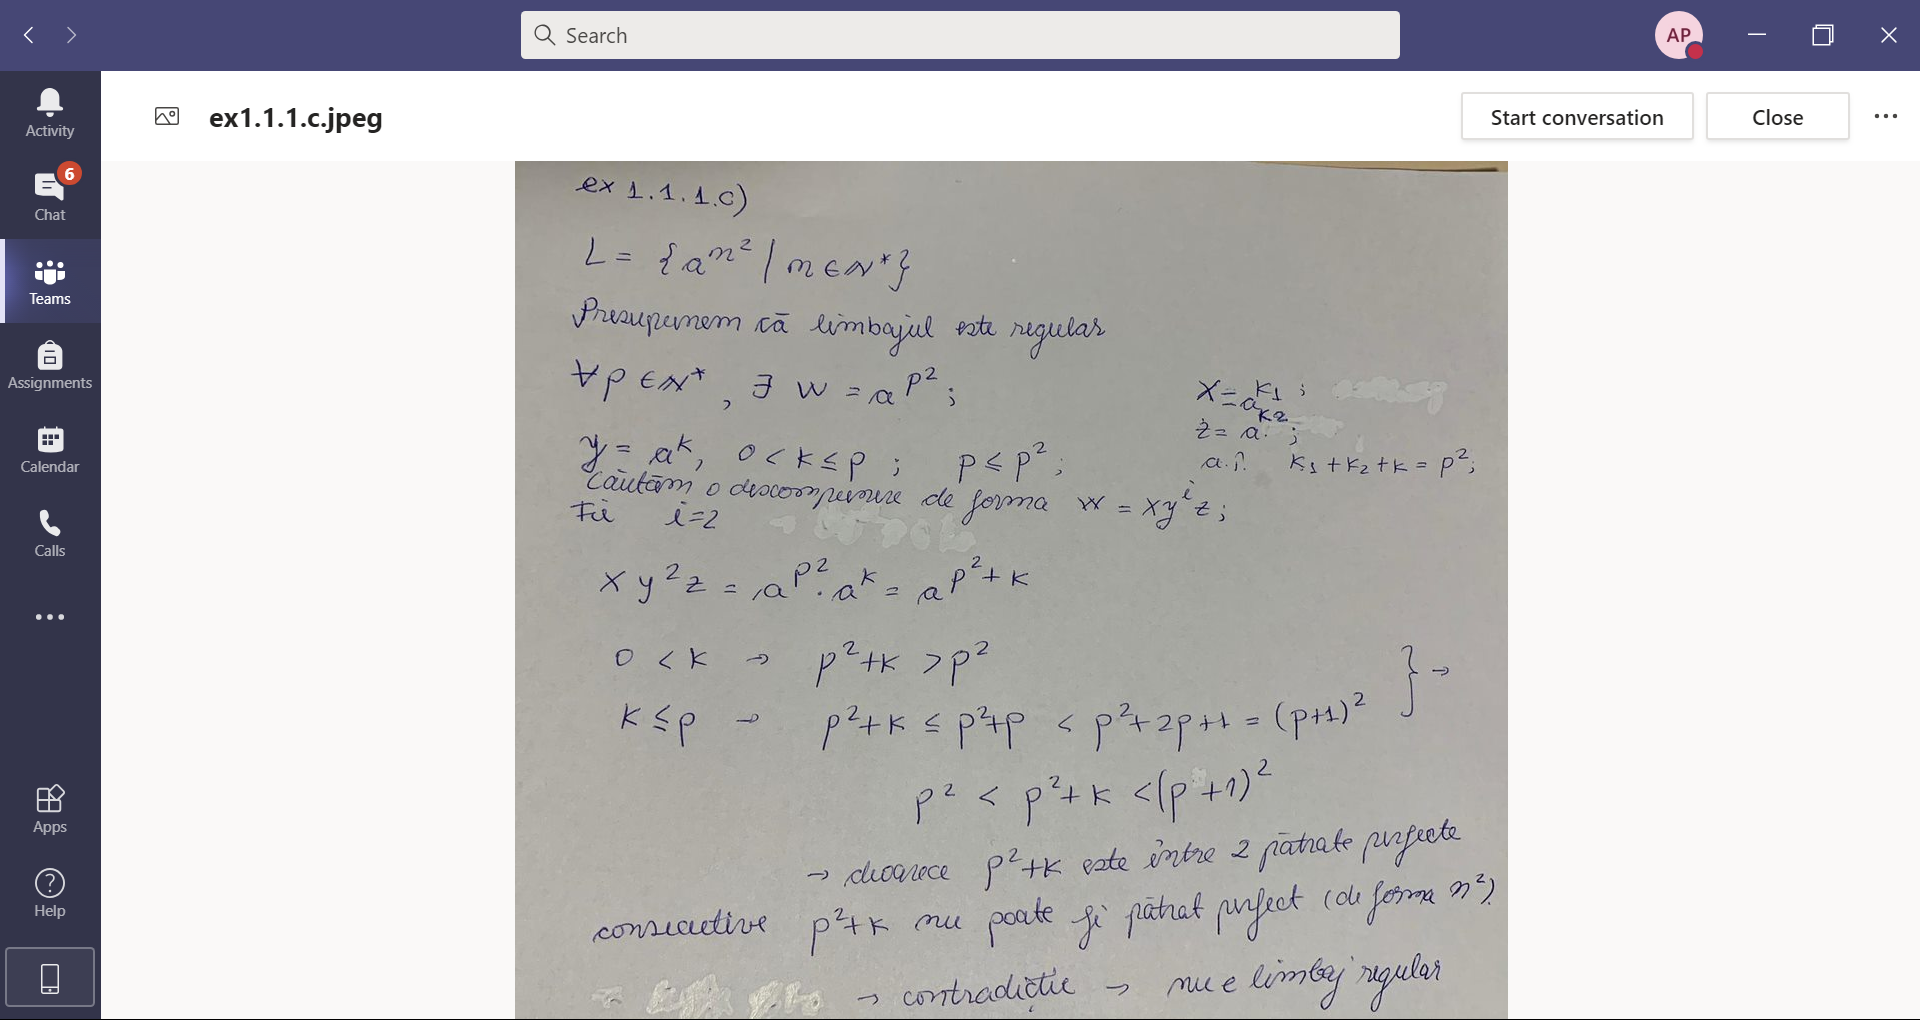 Search
AP
Activity
6
Chat
Teams
Assignments
Calendar
Calls
Apps
Help
ex1.1.1.c.jpeg
Start conversation
Close
ex 1.1.1.c)
L = {a^{n^2} | n ∈ N*}
Presupunem că limbajul este regular
∀ p ∈ N*, ∃ w = a^{p^2};
x = a^{k1};
z = a^{k2};
y = a^k, 0 < k ≤ p; p ≤ p²;
a.î. k1 + k2 + k = p²;
Căutăm o descompunere de forma w = xy^i z;
Fie i=2
x y² z = a^{p²} · a^k = a^{p²+k}
0 < k → p²+k > p²
k ≤ p → p²+k ≤ p²+p < p²+2p+1 = (p+1)² } →
p² < p²+k < (p+1)²
→ deoarece p²+k este între 2 pătrate perfecte
consecutive p²+k nu poate fi pătrat perfect (de forma n²).
→ contradicție → nu e limbaj regular